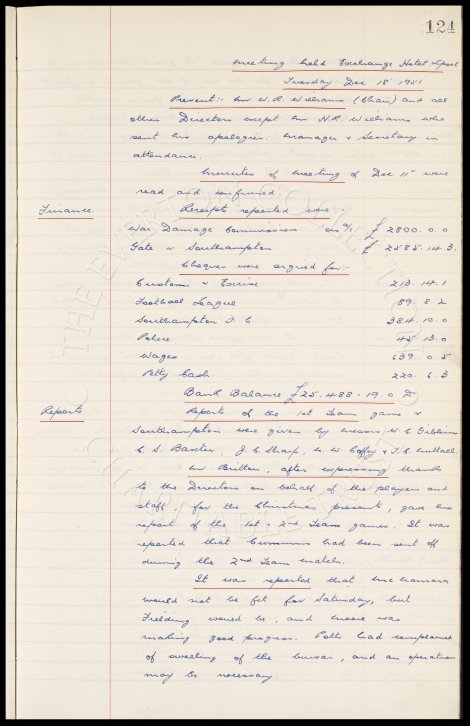 124
Meeting held Exchange Hotel L'pool
Tuesday Dec 18th 1951
Present:- Mr W.R. Williams (Chair) and all
other Directors except Mr N.R. Williams who
sent his apologies. Manager & Secretary in
attendance.
Minutes of meeting of Dec 11th were
read and confirmed.
Finance. Receipts reported were:-
War Damage Commission on a/c £ 2800. 0. 0
Gate v Southampton £ 2585. 14. 3.
Cheques were signed for:-
Customs & Excise 213. 14. 1
Football League 189. 8. 2
Southampton F.C 384. 10. 0
Police 45. 13. 0
Wages 639. 0. 5
Petty Cash 220. 6. 3
Bank Balance £25. 488. 19. 0 Dr
Reports Report of the 1st Team game v
Southampton were given by Messrs W.C. Gibbins
C.S. Baxter, J.C. Sharp, W.W. Coffey & T.C. Nuttall.
Mr Britton, after expressing thanks
to the Directors on behalf of the players and
staff for the Christmas presents, gave his
report of the 1st & 2nd Team games. It was
reported that Cummins had been sent off
during the 2nd Team match.
It was reported that McNamara
would not be fit for Saturday, but
Fielding would be, and Moore was
making good progress. Potts had complained
of swelling of the bursar, and an operation
may be necessary.
THE EVERTON COLLECTION
CHARITABLE TRUST